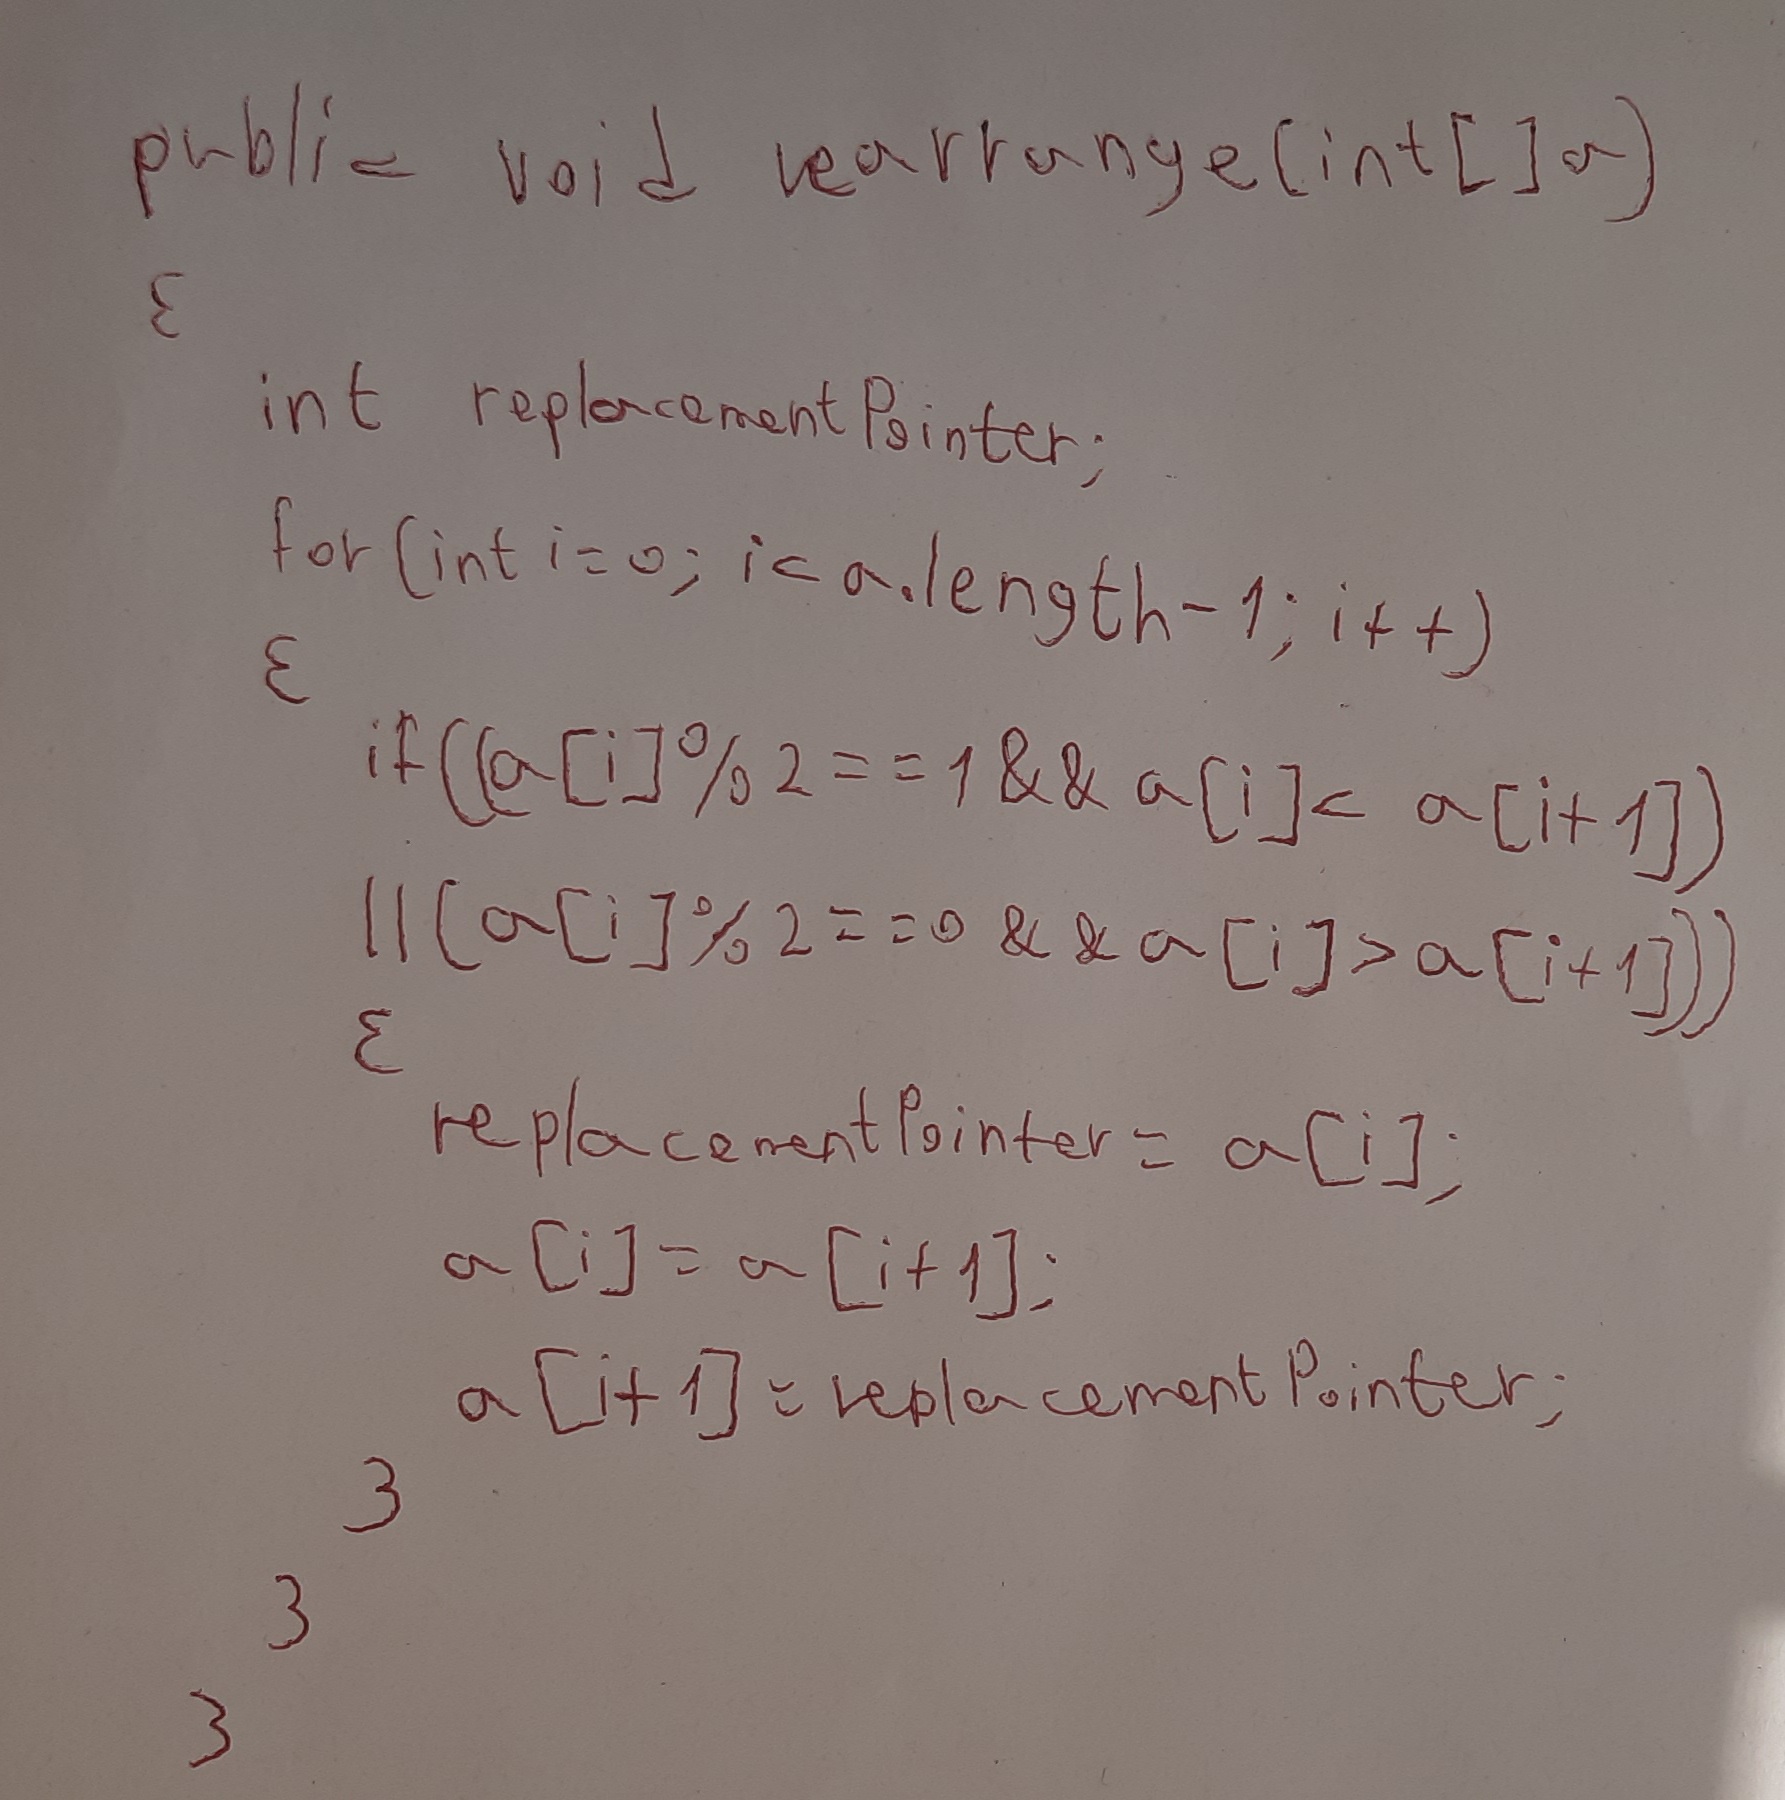 public void rearrange(int[]a)
{
int replacementPointer;
for(int i=0; i<a.length-1; i++)
{
if((a[i]%2==1&&a[i]< a[i+1])
||(a[i]%2==0 && a[i]>a[i+1]))
{
replacementPointer= a[i];
a[i]=a[i+1];
a[i+1]=replacementPointer;
}
}
}